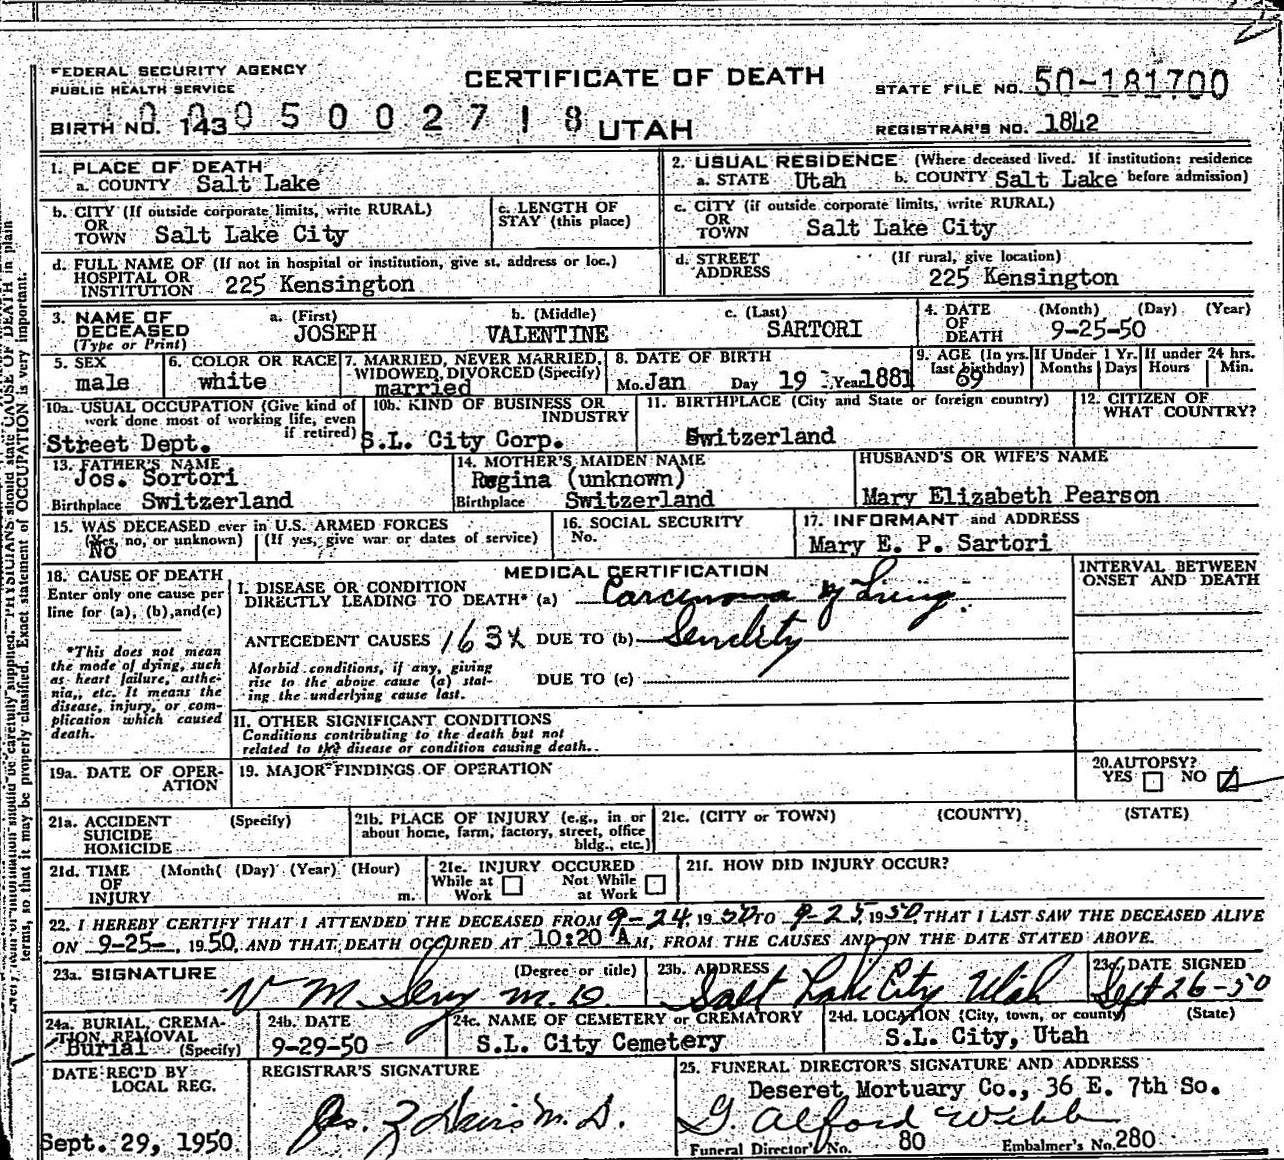 FEDERAL SECURITY AGENCY
PUBLIC HEALTH SERVICE
CERTIFICATE OF DEATH
STATE FILE NO. 50-181700
BIRTH NO. 143 0005002718 UTAH
REGISTRAR'S NO. 1842
1. PLACE OF DEATH
a. COUNTY Salt Lake
2. USUAL RESIDENCE (Where deceased lived. If institution: residence
a. STATE Utah b. COUNTY Salt Lake before admission)
b. CITY (If outside corporate limits, write RURAL)
OR
TOWN Salt Lake City
c. LENGTH OF
STAY (this place)
c. CITY (if outside corporate limits, write RURAL)
OR
TOWN Salt Lake City
d. FULL NAME OF (If not in hospital or institution, give st. address or loc.)
HOSPITAL OR
INSTITUTION 225 Kensington
d. STREET (If rural, give location)
ADDRESS 225 Kensington
3. NAME OF
DECEASED
(Type or Print)
a. (First)
JOSEPH
b. (Middle)
VALENTINE
c. (Last)
SARTORI
4. DATE (Month) (Day) (Year)
OF
DEATH 9-25-50
5. SEX
male
6. COLOR OR RACE
white
7. MARRIED, NEVER MARRIED,
WIDOWED, DIVORCED (Specify)
married
8. DATE OF BIRTH
Mo. Jan Day 19 Year 1881
9. AGE (In yrs.
last birthday)
69
If Under 1 Yr.
Months Days
If under 24 hrs.
Hours Min.
10a. USUAL OCCUPATION (Give kind of
work done most of working life, even
if retired)
Street Dept.
10b. KIND OF BUSINESS OR
INDUSTRY
S.L. City Corp.
11. BIRTHPLACE (City and State or foreign country)
Switzerland
12. CITIZEN OF
WHAT COUNTRY?
13. FATHER'S NAME
Jos. Sortori
Birthplace Switzerland
14. MOTHER'S MAIDEN NAME
Regina (unknown)
Birthplace Switzerland
HUSBAND'S OR WIFE'S NAME
Mary Elizabeth Pearson
15. WAS DECEASED ever in U.S. ARMED FORCES
(Yes, no, or unknown) (If yes, give war or dates of service)
No
16. SOCIAL SECURITY
No.
17. INFORMANT and ADDRESS
Mary E. P. Sartori
18. CAUSE OF DEATH
Enter only one cause per
line for (a), (b), and (c)
*This does not mean
the mode of dying, such
as heart failure, asthe-
nia, etc. It means the
disease, injury, or com-
plication which caused
death.
MEDICAL CERTIFICATION
I. DISEASE OR CONDITION
DIRECTLY LEADING TO DEATH* (a) Carcinoma of Lung.
ANTECEDENT CAUSES 163X DUE TO (b) Senility
Morbid conditions, if any, giving
rise to the above cause (a) stat-
ing the underlying cause last.
DUE TO (c)
INTERVAL BETWEEN
ONSET AND DEATH
II. OTHER SIGNIFICANT CONDITIONS
Conditions contributing to the death but not
related to the disease or condition causing death.
19a. DATE OF OPER-
ATION
19. MAJOR FINDINGS OF OPERATION
20. AUTOPSY?
YES NO
21a. ACCIDENT (Specify)
SUICIDE
HOMICIDE
21b. PLACE OF INJURY (e.g., in or
about home, farm, factory, street, office
bldg., etc.)
21c. (CITY or TOWN) (COUNTY) (STATE)
21d. TIME (Month( (Day) (Year) (Hour)
OF
INJURY m.
21e. INJURY OCCURED
While at Not While
Work at Work
21f. HOW DID INJURY OCCUR?
22. I HEREBY CERTIFY THAT I ATTENDED THE DECEASED FROM 9-24 1950 TO 9-25 1950, THAT I LAST SAW THE DECEASED ALIVE
ON 9-25-, 1950, AND THAT DEATH OCCURED AT 10:20 A M, FROM THE CAUSES AND ON THE DATE STATED ABOVE.
23a. SIGNATURE (Degree or title)
V M M.D.
23b. ADDRESS
Salt Lake City Utah
23c. DATE SIGNED
Sept 26-50
24a. BURIAL, CREMA-
TION, REMOVAL
Burial (Specify)
24b. DATE
9-29-50
24c. NAME OF CEMETERY or CREMATORY
S.L. City Cemetery
24d. LOCATION (City, town, or county) (State)
S.L. City, Utah
DATE REC'D BY
LOCAL REG.
Sept. 29, 1950
REGISTRAR'S SIGNATURE
Jos. Z Davis M.D.
25. FUNERAL DIRECTOR'S SIGNATURE AND ADDRESS
Deseret Mortuary Co., 36 E. 7th So.
G. Alford Webb
Funeral Director's No. 80 Embalmer's No. 280
PHYSICIANS should state CAUSE OF DEATH in plain
terms, so that it may be properly classified. Exact statement of OCCUPATION is very important.